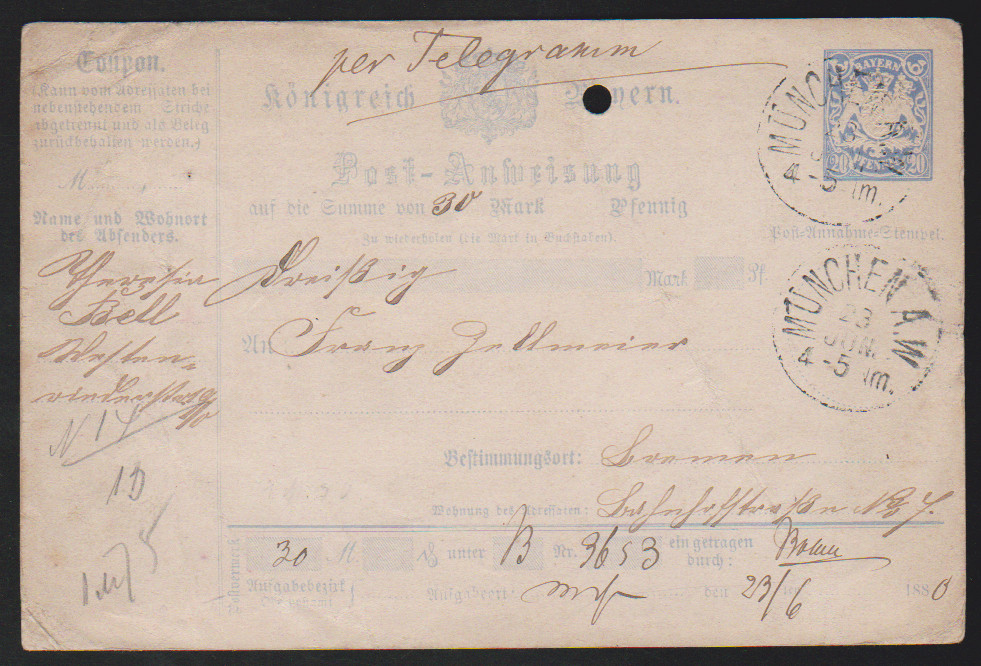 per Telegramm
Coupon.
(Kann vom Adressaten bei
nebenstehendem Striche
abgetrennt und als Beleg
zurückbehalten werden.)
M.
Name und Wohnort
des Absenders.
Theresia
Bell
Westen-
riederstr.
N 14
Königreich Bayern.
Post-Anweisung
auf die Summe von 30 Mark Pfennig
Zu wiederholen (die Mark in Buchstaben).
Dreißig Mark Pf
An Franz Zellmeier
Bestimmungsort: Bremen
Wohnung des Adressaten: Bahnhofstraße No 7.
BAYERN
20 PFENNIG 20
MÜNCHEN
4-5 Nm.
Post-Annahme-Stempel.
MÜNCHEN A.W
23
JUN
4-5 Nm.
Postvermerk
30 M. unter B Nr. 3653 eingetragen
durch:
Ausgabebezirk
Ausgabeort: den 23/6 1880